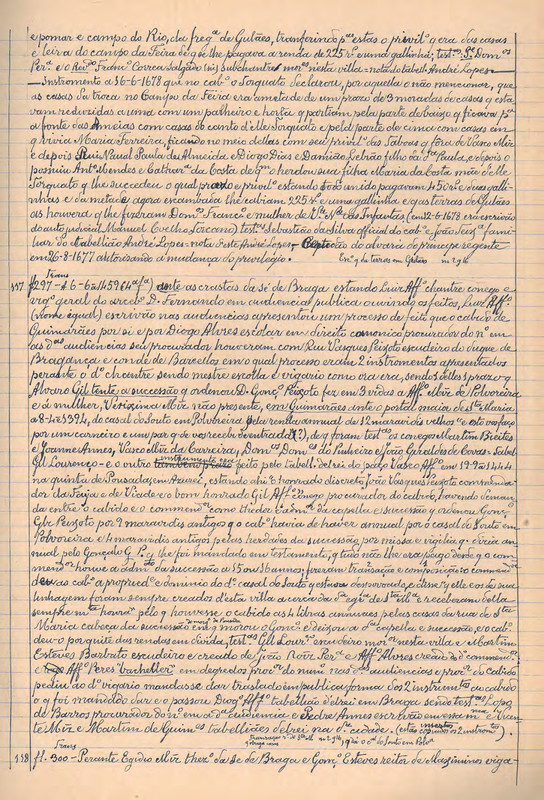 e pomar e campo do Rio, da freg.ª de Gulães, transferindo p.ª estas o privil.º q era das casas
e leira do campo da Feira de q se lhe pagava a renda de 225 r.ˢ e uma gallinha; test.ᵃˢ P.ᵉ Dom.ᵒˢ
Per.ª e o Rev.ᵈᵒ Fran.ᶜᵒ Correa Salgado (sic) Subchantre mo.ʳᵉˢ nesta villa = nota do tabell. André Lopes =
— Instrumento a 16-6-1678 que no cab.º o Torquato declarou, por aquella o não mencionar, que
as casas da troca no Campo da Feira era ametade de um prazo de 3 moradas de casas q esta
vam reduzidas a uma com um palheiro e horta q partiam pela parte de baixo q ficava p.ª
a fonte das Ameias com casas do canto delle Torquato e pela parte de cima com casas em
q vivia Maria Ferreira, ficando no meio dellas com seu privil.º das Tabuas q fora de Vasco Miz
e depois Rui Naval Paula de Almeida e Diogo Dias e Damião Leitrão filho da d.ª Paula, e depois o
possuiu Ant.º Mendes e Catha.ª da Costa de q.ᵐ o herdou sua filha Maria da Costa mãe delle
Torquato q lhe succedeu o qual prazo e privil.º estando todo unido pagavam 450 r.ˢ e duas galli-
nhas e da metade agora escambada lhe cabiam 225 r.ˢ e uma gallinha e q as terras de Gulães
as houvera q lhe fizeram Dom.ᵒˢ Franc.º e mulher de
do auto judicial Manuel Coelho test.ᵃˢ Sebastião da Silva official do cab.º e João fami-
liar do tabellião André Lopes = nota deste André Lopes = do alvara do principe regente
em 26-8-1677 autorisando a mudança do privilegio.
Trans
117 f. 297 - 4-6- a 1459 ante as crastas da sé de Braga estando Luiz Aff.º chantre conego e
vig.º geral do arceb.º D. Fernando em audiencia publica ouvindo os feitos, Luiz Aff.º
(nome egual) escrivão nas audiencias apresentou um processo de feito que o cabido de
Guimarães por si e por Diogo Alvres escolar em direito canonico procurador do n.º em
as d.ᵃˢ audiencias seu procurador houveram com Rui Vasques Peixoto escudeiro do duque de
Bragança e conde de Barcellos em o qual processo eram 2 instrumentos apresentados
perante o d.º chantre sendo mestre escolla e vigario como ora era, sendo 1 delles 1 prazo q
Alvaro Gil tente a successão q ordenou D. Gonç.º Peixoto fez em 3 vidas a Aff.º Miz de Polvoreira
e á mulher, Miz não presente, em Guimarães ante o portal maior de S.ᵗᵃ Maria
a 8-4-1394, do casal do Souto em Polvoreira pela renda annual de 12 maravidis velhos e
por um carneiro e um par q de vos recebi de entrada (?), de q foram test.ᵃˢ os conegos Martim Bieites
e Joanne Annes, Vasco Miz da Carraria, Dom.ᵒˢ Dom.ᵉˢ do Pinheiro e João Giraldes de Covas = tabel.
Gil Lourenço = e o outro feito pelo tabell. delrei do paço Vasco Aff.º em 19-9-1444
na quinta de Pousada em estando ahi o honrado discreto João Vasques Peixoto commenda-
dor da Faja e de Viade e o bom honrado Gil Aff.º conego procurador do cabido, havendo deman-
da entre o cabido e o commend.ᵒʳ como da capella e successão q ordenou Gonç.º
Glz Peixoto por 9 maravidis antigos q o cab.º havia de haver annual por o casal do Souto em
Polvoreira e 4 maravidis antigos pelas herdades da successão por missa e vigilia q dizia an-
nual pelo Gonçalo G. q lhe foi mandado em testamento, q tudo não lhe era pago desde q o com-
mend.ᵒʳ houve a adm.ᵃᵐ da successão a 15 ou 16 annos; fizeram transação e composição o commend.
deu ao cab.º a propried.ᵉ e dominio do d.º casal do Souto q estava despovoado, e disse q elle e os de sua
linhagem foram sempre creados desta villa a cerca da egr.ª de S.ᵗᵃ M.ª e receberam della
sempre m.ᵗᵃ honra pelo q houvesse o cabido as 4 libras annuaes pelas casas da rua de S.ᵗᵃ
Maria cabeça da successão em q morou o Gonç.º e deixou a d.ª capella e successão, e o cab.º
deu-o por quite das rendas em divida, test.ᵃˢ Gil Lour.º escudeiro mo.ʳ nesta villa e Martim
Esteves Barbato escudeiro e creado de João Roiz Per.ª e Aff.º Alvres creado do d.º commend.ᵒʳ
e Aff.º Peres "bacheller" em degredos proc.ᵒʳ do num. nas d.ᵃˢ audiencias e proc.ᵒʳ do cabido
pediu ao d.º vigario mandasse dar traslado em publica forma dos 2 instrum.ᵗᵒˢ ao cabido
e q foi mandado dar e o passou Diog. Aff.º tabellião delrei em Braga sendo test.ᵃˢ Lopo
de Barros procurador do n.º em a d.ª audiencia e Pedre Annes escrivão em essa m.ᵐᵃ e Vicente
Miz e Martim de Guim.ᵉˢ tabelliães delrei na d.ª cidade. (estão copiados os 2 instrum.)
Trans
118 fl. 300 - Perante Egidio Miz thez.º da sé de Braga e Gonç.º Esteves reitor de Maximinos viga-